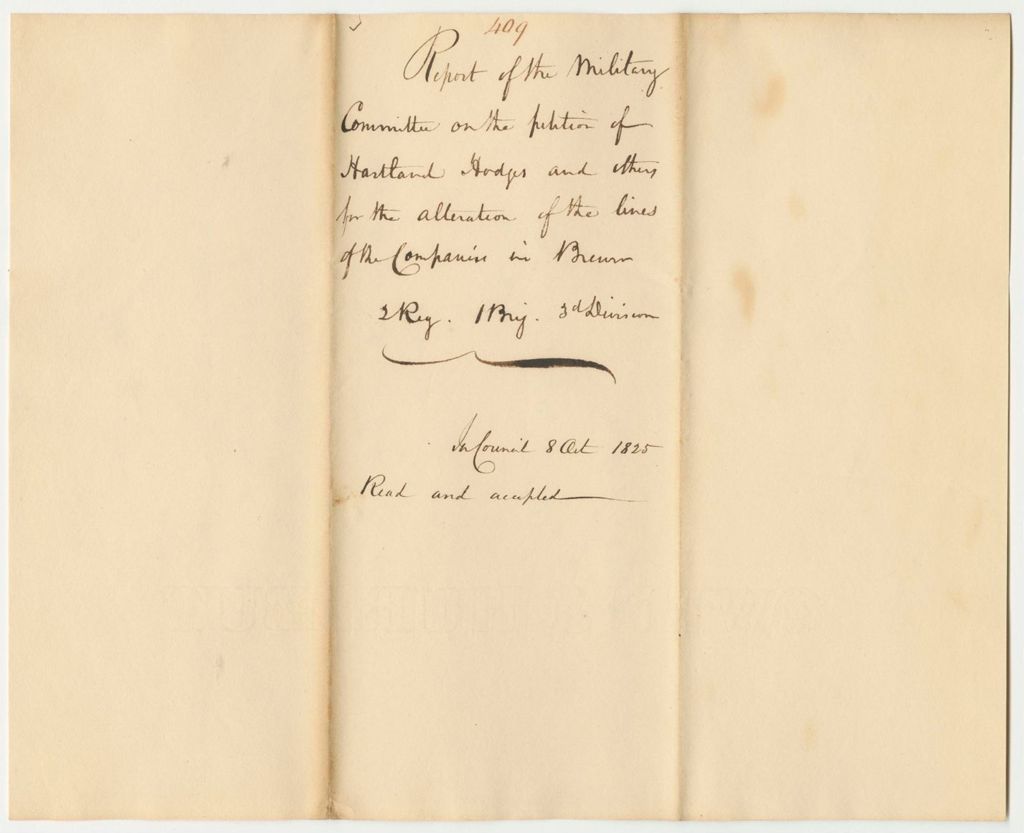 409
Report of the Military
Committee on the petition of
Hartland Hodges and others
for the alteration of the lines
of the Companies in
2 Reg. 1 Brig. 3d Division
In Council 8 Oct 1825
Read and accepted